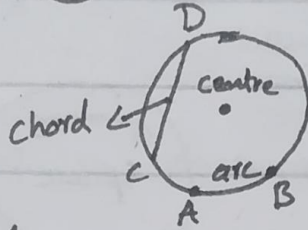 D
centre
chord
C
arc
A
B